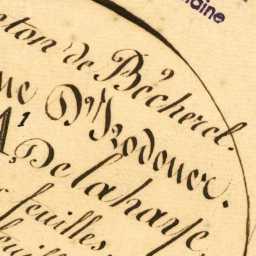 aine
ton de Bécherel.
ue D'Irodouer.
A.¹ De la haye
feuilles